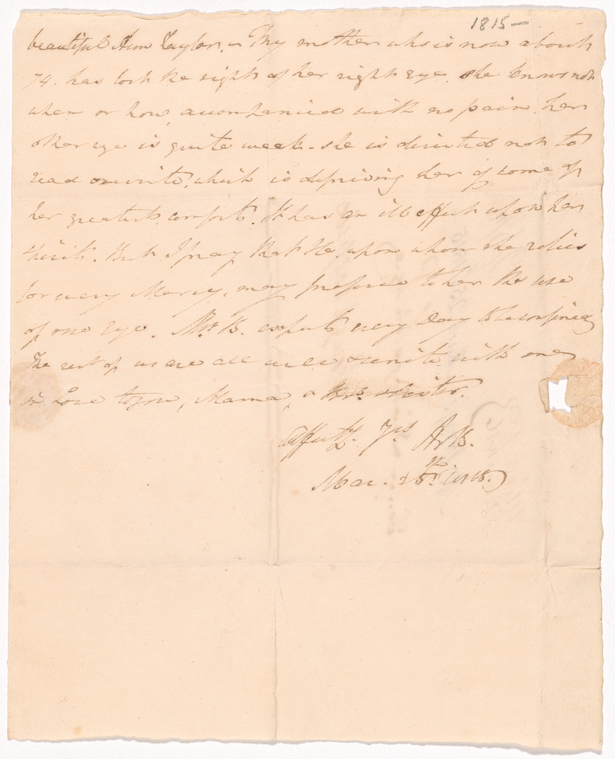 1815—
beautiful Ann Taylor. – Thy mother who is now about
74. has lost the sight of her right eye. she knows not
when or how, accompanied with no pain. her
other eye is quite weak. she is directed not to
read or write, which is depriving her of some of
her greatest comforts. It has an ill effect upon her
But I pray that He, upon whom she relies
for every Mercy, may preserve to her the use
of one Eye. Mrs B. expects every day to be confined
The rest of us are all well & unite with one
in Love to you, Mama, &
Affectly. Yrs A. B.
Mar. 25th. 1815.